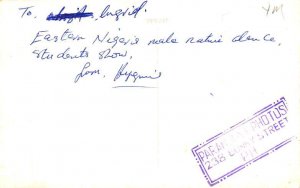 To, Ingrid.
Eastern Nigeria male native dance,
students show,
from,
YM
PARAMOUNT PHOTOS
STREET